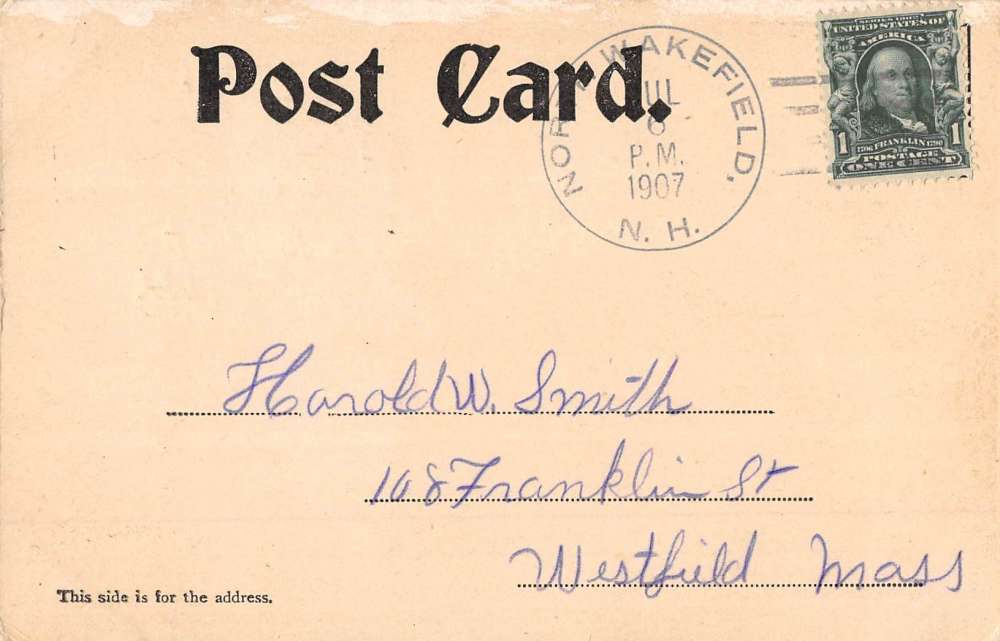 Post Card.
NORTH WAKEFIELD, N. H.
JUL
6
P.M.
1907
SERIES 1902
UNITED STATES OF
AMERICA
1 1
1706 FRANKLIN 1790
POSTAGE
ONE CENT
Harold W. Smith
108 Franklin St
Westfield Mass
This side is for the address.